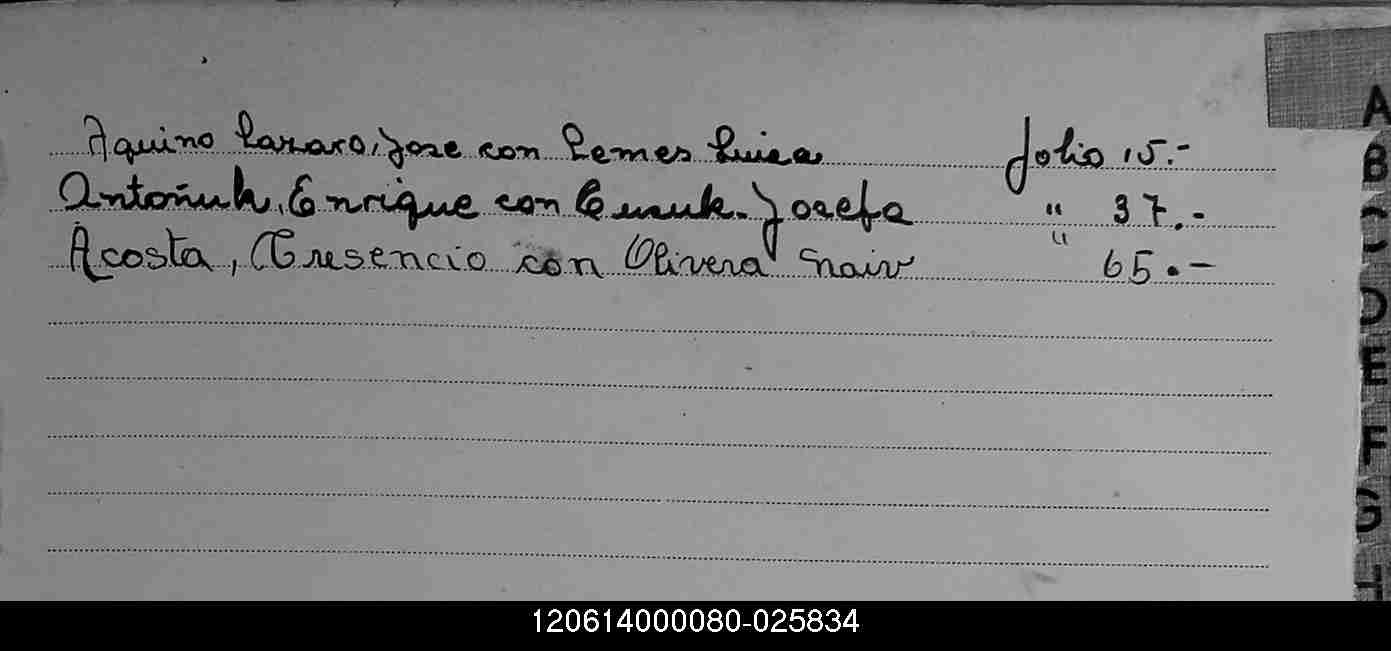 Aquino Lazaro, Jose con Lemes Luisa folio 15.-
Antoñuk, Enrique con Josefa " 37.-
Acosta, Cresencio con Olivera Nair " 65.-
A
B
C
D
E
F
G
H
120614000080-025834